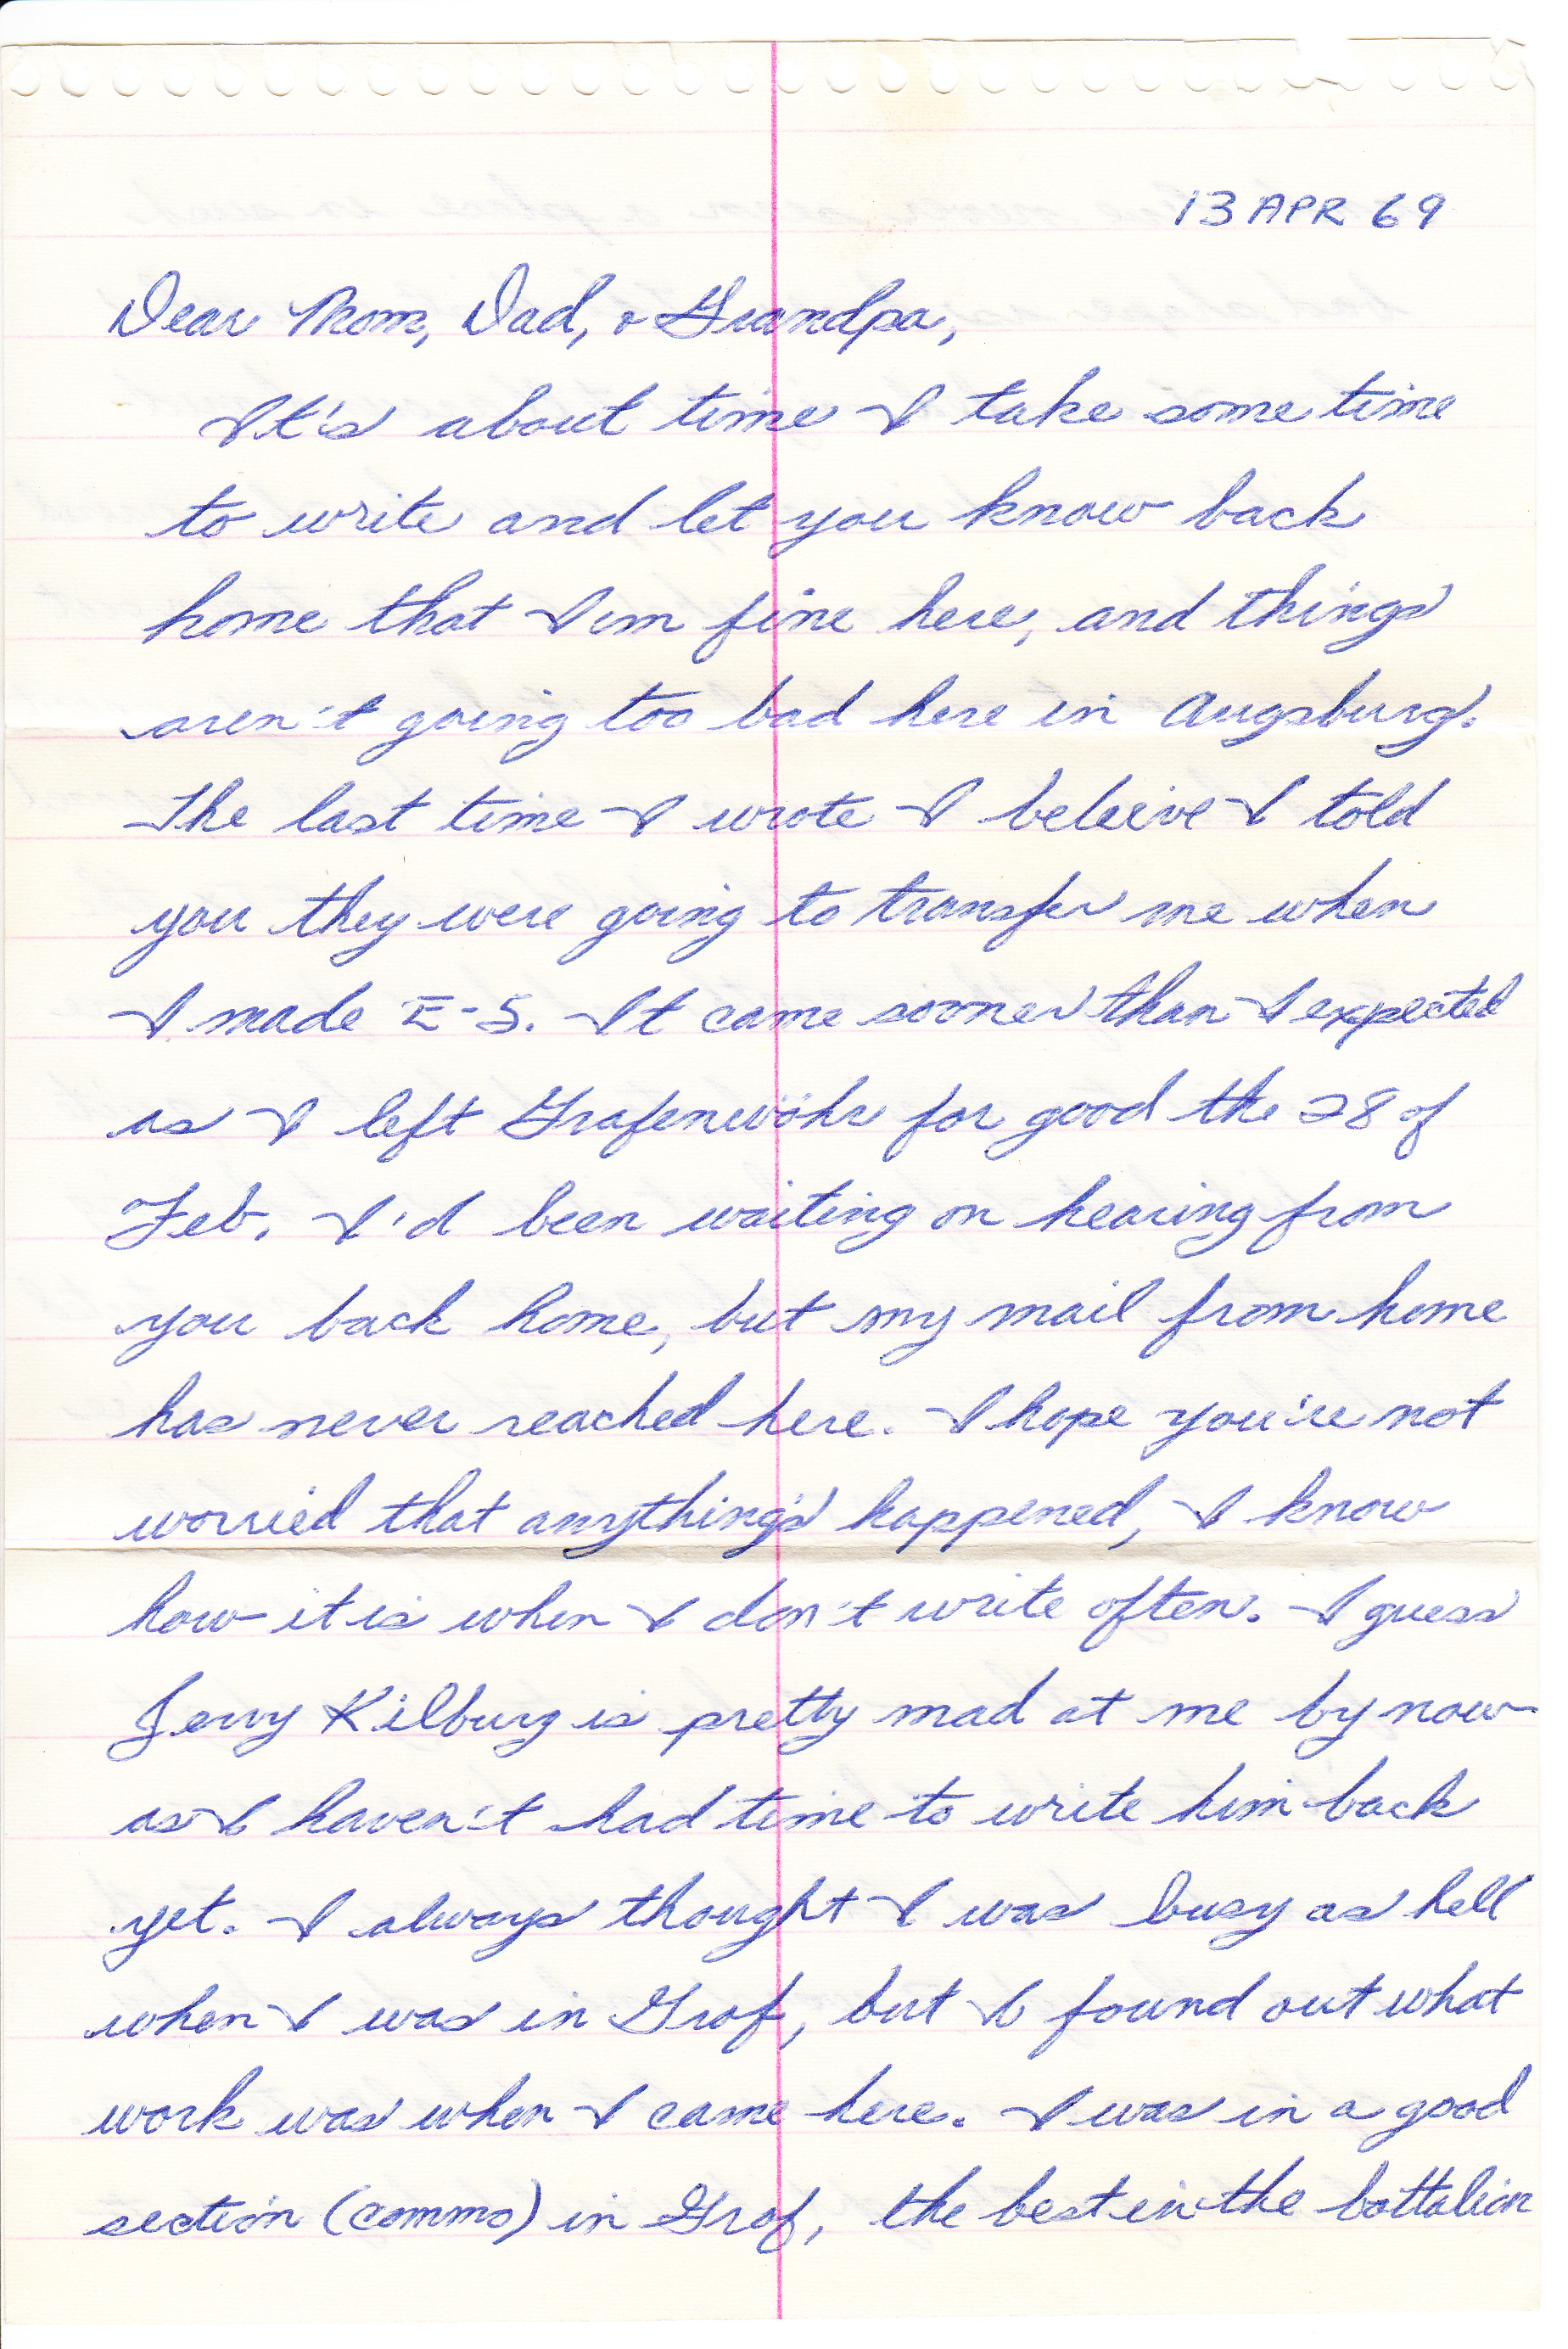 13 APR 69
Dear Mom, Dad, & Grandpa,
It's about time I take some time
to write and let you know back
home that I'm fine here, and things
aren't going too bad here in Augsburg.
The last time I wrote I beleive I told
you they were going to transfer me when
I made E-5. It came sooner than I expected
as I left Grafenwöhr for good the 28 of
Feb. I'd been waiting on hearing from
you back home, but my mail from home
has never reached here. I hope you're not
worried that anything's happened, I know
how it is when I don't write often. I guess
Jerry Kilburg is pretty mad at me by now
as I haven't had time to write him back
yet. I always thought I was busy as hell
when I was in Graf, but I found out what
work was when I came here. I was in a good
section (commo) in Graf, the best in the battalion